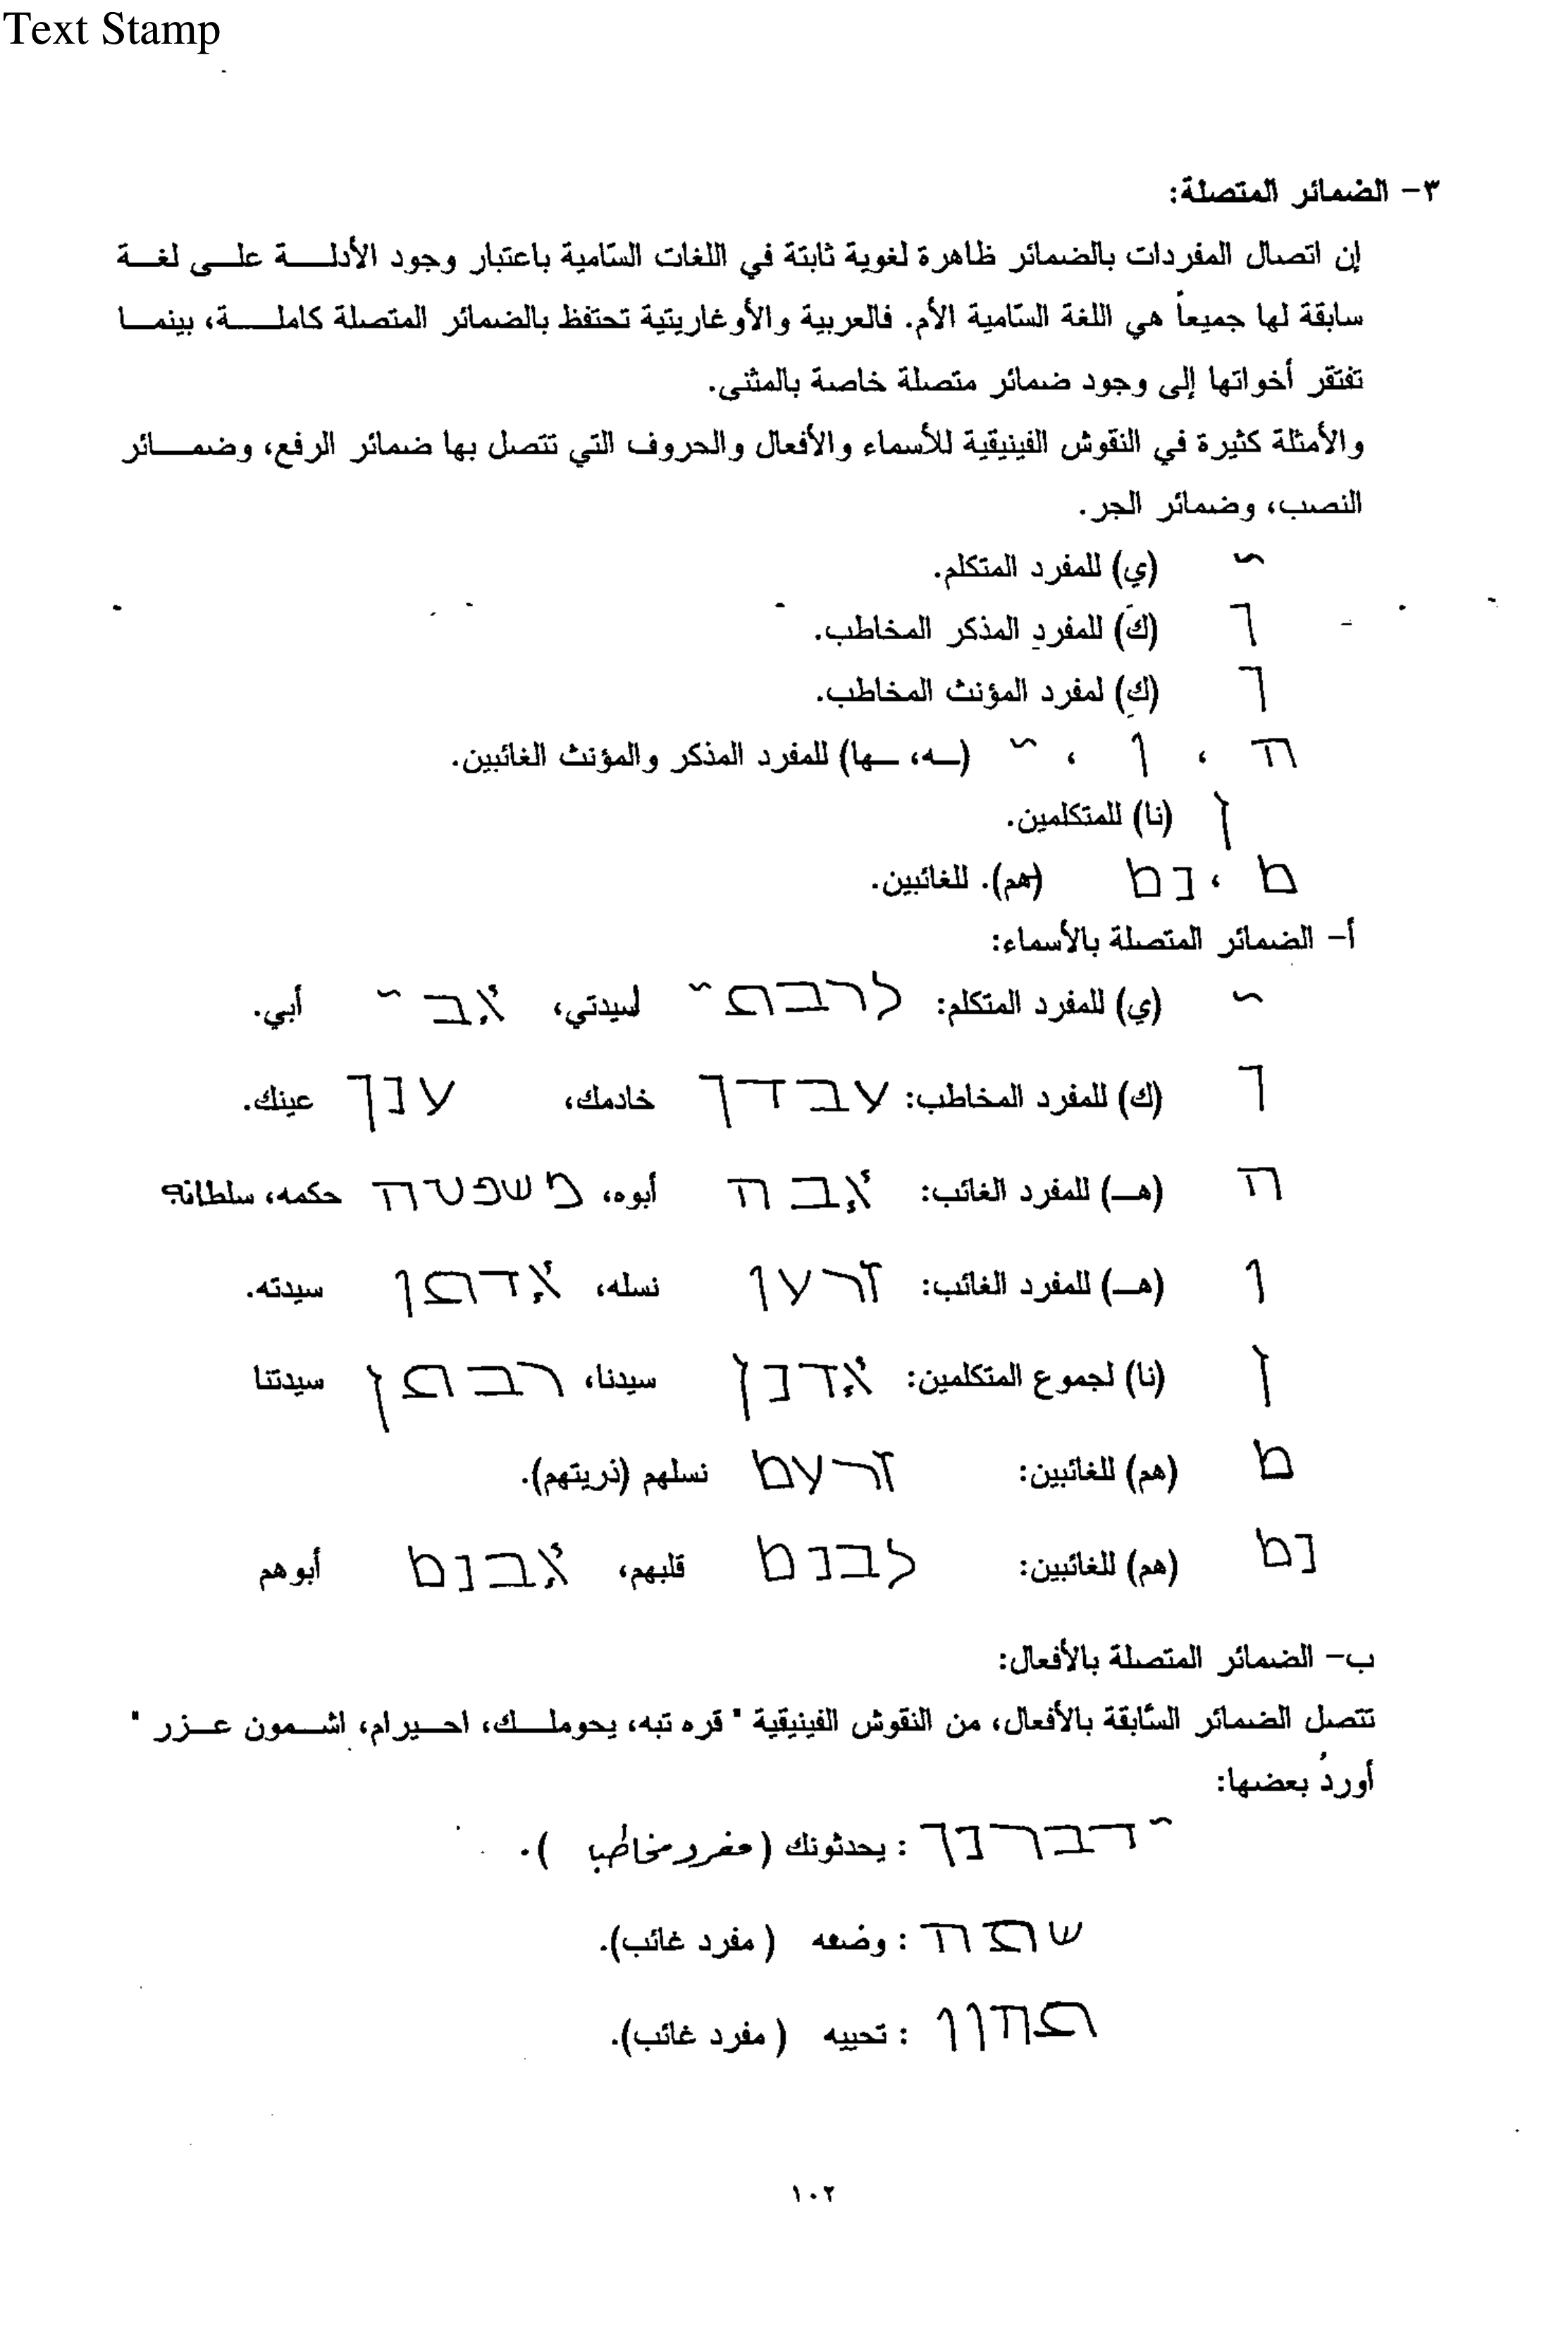 Text Stamp
٣- الضمائر المتصلة:
إن اتصال المفردات بالضمائر ظاهرة لغوية ثابتة في اللغات السّامية باعتبار وجود الأدلــة علــى لغــة
سابقة لها جميعاً هي اللغة السّامية الأم. فالعربية والأوغاريتية تحتفظ بالضمائر المتصلة كاملــة، بينمــا
تفتقر أخواتها إلى وجود ضمائر متصلة خاصة بالمثنى.
والأمثلة كثيرة في النقوش الفينيقية للأسماء والأفعال والحروف التي تتصل بها ضمائر الرفع، وضمــائر
النصب، وضمائر الجر.
י (ي) للمفرد المتكلم.
ך (كَ) للمفرد المذكر المخاطب.
ך (كِ) لمفرد المؤنث المخاطب.
ה ، ו ، י (ـه، ـها) للمفرد المذكر والمؤنث الغائبين.
ן (نا) للمتكلمين.
ם ، נם (هم). للغائبين.
أ- الضمائر المتصلة بالأسماء:
י (ي) للمفرد المتكلم: לרבתי لسيدتي، אבי أبي.
ך (ك) للمفرد المخاطب: עבדך خادمك، ענך عينك.
ה (هـ) للمفرد الغائب: אבה أبوه، משפטה حكمه، سلطانه؟
ו (هـ) للمفرد الغائب: זרעו نسله، אדתו سيدته.
ן (نا) لجموع المتكلمين: אדנן سيدنا، רבתן سيدتنا
ם (هم) للغائبين: זרעם نسلهم (ذريتهم).
נם (هم) للغائبين: לבנם قلبهم، אבנם أبوهم
ب- الضمائر المتصلة بالأفعال:
تتصل الضمائر السّابقة بالأفعال، من النقوش الفينيقية " قره تبه، يحوملــك، احــيرام، اشــمون عــزر "
أوردُ بعضها:
ידברנך : يحدثونك (مفرد مخاطب).
שתה : وضعه (مفرد غائب).
תחוו : تحييه (مفرد غائب).
١٠٢